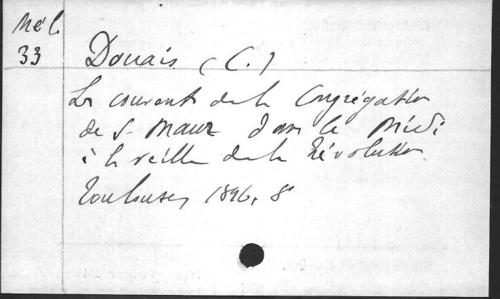 Mél.
33
Douais (C.)
Les couvents de la Congrégation
de S. Maur dans le Midi
à la veille de la Révolution.
Toulouse, 1896, 8°